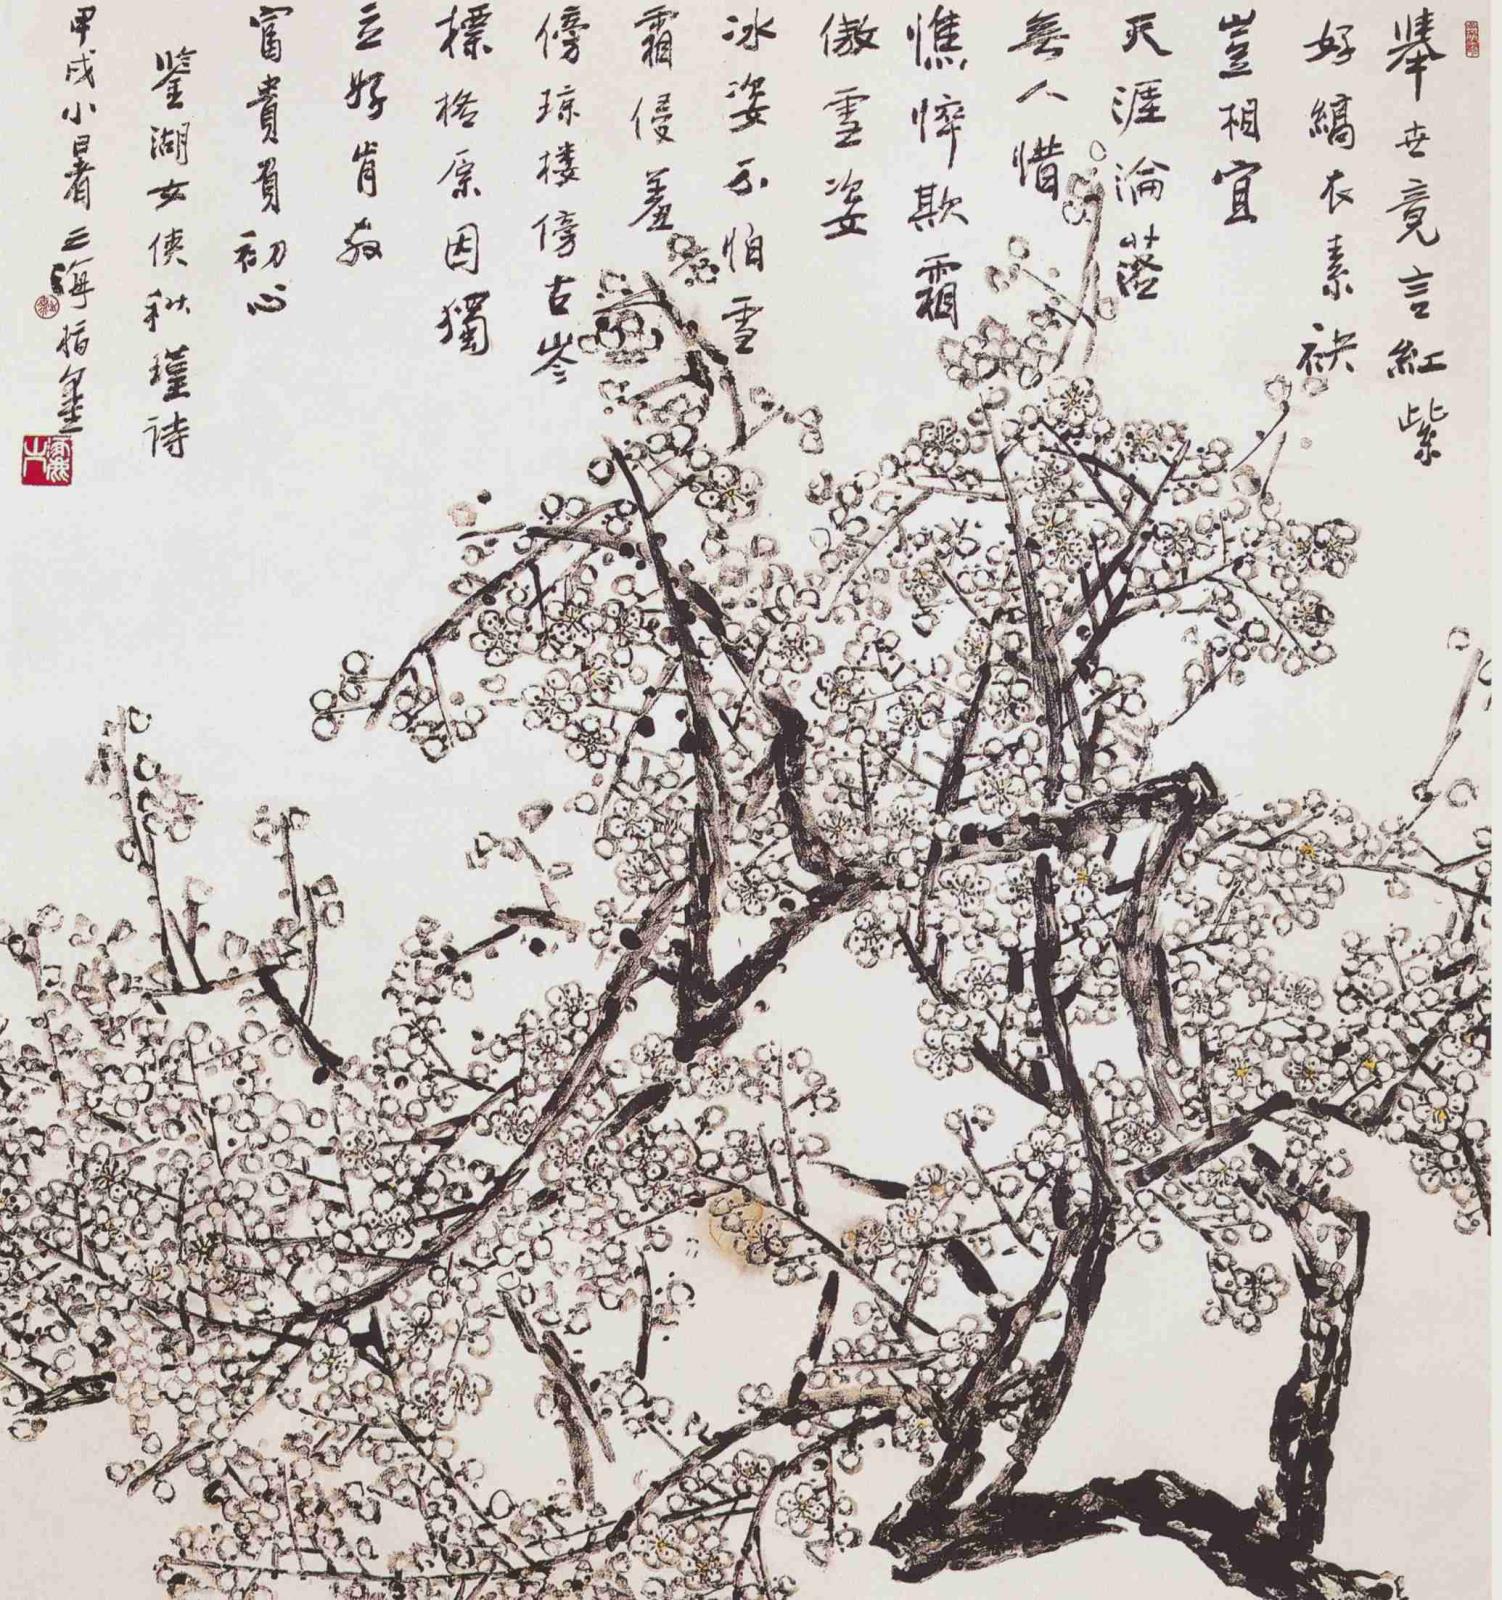 舉世竟言紅紫
好縞衣素袂
豈相宜
天涯淪落
無人惜
憔悴欺霜
傲雪姿
冰姿不怕雪
霜侵羞
傍琼楼傍古岑
標格原因獨
立好肯教
富貴負初心
鑒湖女俠秋瑾诗
甲戌小暑之海指畫